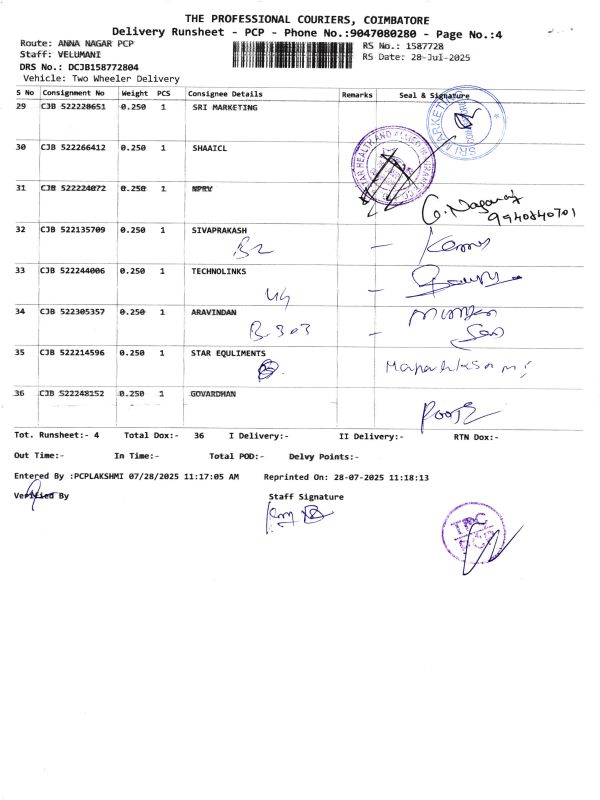 THE PROFESSIONAL COURIERS, COIMBATORE
Delivery Runsheet - PCP - Phone No.:9047080280 - Page No.:4
Route: ANNA NAGAR PCP RS No.: 1587728
Staff: VELUMANI RS Date: 28-Jul-2025
DRS No.: DCJB158772804
Vehicle: Two Wheeler Delivery
S No Consignment No Weight PCS Consignee Details Remarks Seal & Signature
29 CJB 522220651 0.250 1 SRI MARKETING
30 CJB 522266412 0.250 1 SHAAICL
31 CJB 522224072 0.250 1 NPRV
G. Nagaraj
9940840701
32 CJB 522135709 0.250 1 SIVAPRAKASH
B2
33 CJB 522244006 0.250 1 TECHNOLINKS
34 CJB 522305357 0.250 1 ARAVINDAN
B.303
35 CJB 522214596 0.250 1 STAR EQULIMENTS
36 CJB 522248152 0.250 1 GOVARDHAN
Tot. Runsheet:- 4 Total Dox:- 36 I Delivery:- II Delivery:- RTN Dox:-
Out Time:- In Time:- Total POD:- Delvy Points:-
Entered By :PCPLAKSHMI 07/28/2025 11:17:05 AM Reprinted On: 28-07-2025 11:18:13
Verified By Staff Signature